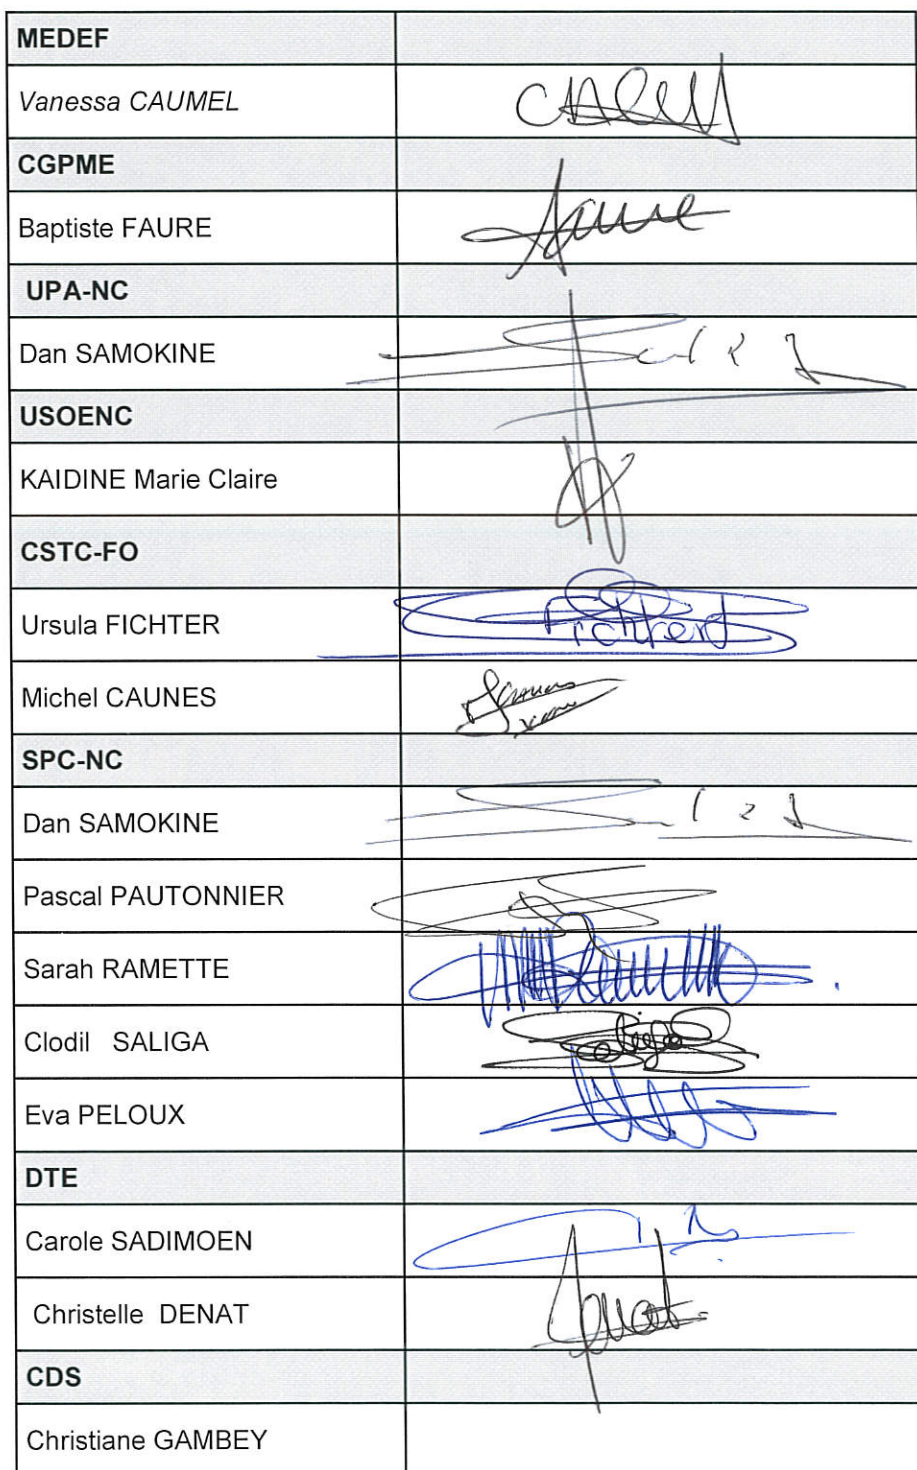 MEDEF
Vanessa CAUMEL
CGPME
Baptiste FAURE
UPA-NC
Dan SAMOKINE
USOENC
KAIDINE Marie Claire
CSTC-FO
Ursula FICHTER
Michel CAUNES
SPC-NC
Dan SAMOKINE
Pascal PAUTONNIER
Sarah RAMETTE
Clodil SALIGA
Eva PELOUX
DTE
Carole SADIMOEN
Christelle DENAT
CDS
Christiane GAMBEY